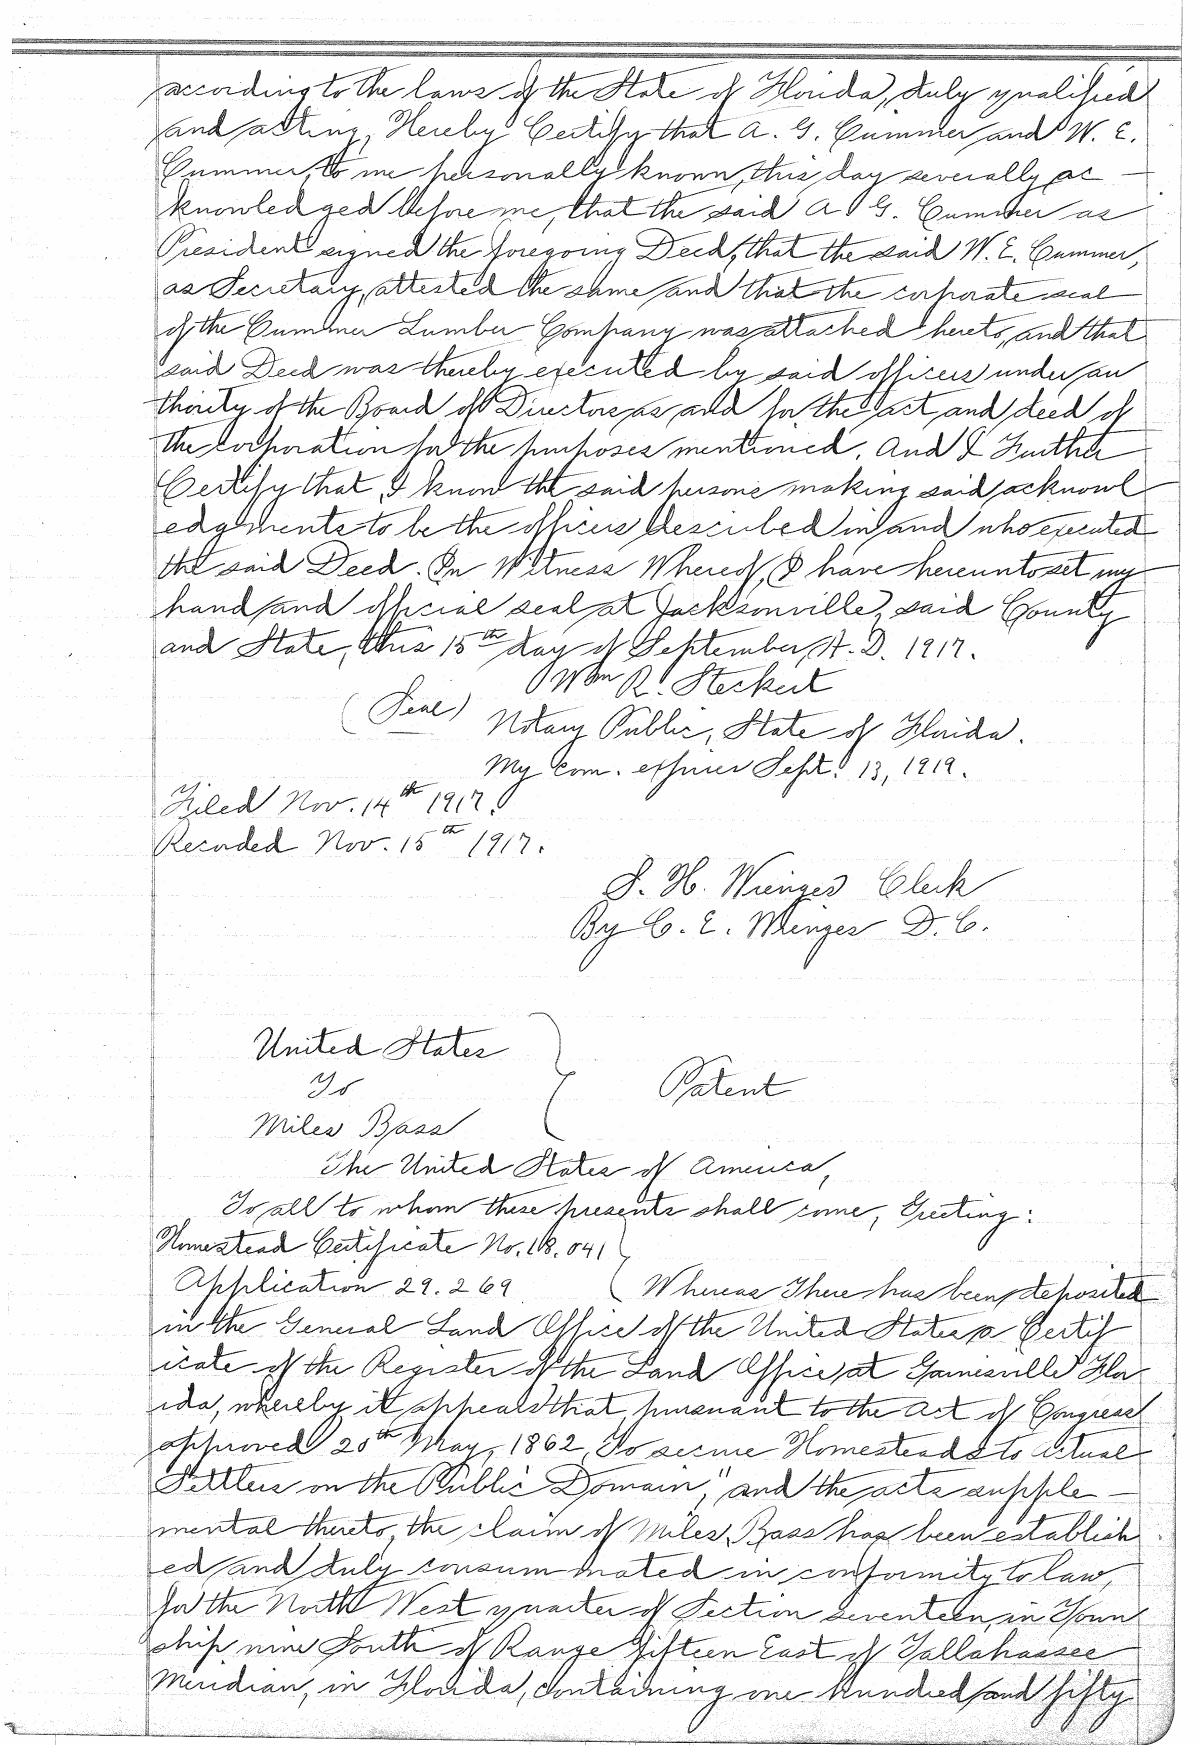 according to the laws of the State of Florida, duly qualified
and acting, Hereby Certify that A. G. Cummer and W. E.
Cummer, to me personally known, this day severally ac -
knowledged before me, that the said A G. Cummer as
President signed the foregoing Deed, that the said W. E. Cummer,
as Secretary, attested the same and that the corporate seal
of the Cummer Lumber Company was attached hereto, and that
said Deed was thereby executed by said officers under au
thority of the Board of Directors as and for the act and deed of
the corporation for the purposes mentioned. And I Further
Certify that I know the said persons making said acknowl
edgments to be the officers described in and who executed
the said Deed. In Witness Whereof, I have hereunto set my
hand and official seal at Jacksonville, said County
and State, this 15th day of September A. D. 1917.
Wm R. Steckert
(Seal) Notary Public, State of Florida.
My com. expires Sept. 13, 1919.
Filed Nov. 14th 1917.
Recorded Nov. 15th 1917.
S. H. Wienges Clerk
By C. E. Wienges D. C.
United States
To Patent
Miles Bass
The United States of America,
To all to whom these presents shall come, Greeting:
Homestead Certificate No. 18.041
Application 29.269 Whereas There has been deposited
in the General Land Office of the United States a Certif
icate of the Register of the Land Office at Gainesville Flor
ida, whereby it appears that, pursuant to the Act of Congress
approved 20th May, 1862, To secure Homesteads to Actual
Settlers on the Public Domain," and the acts supple -
mental thereto, the claim of Miles Bass has been establish
ed and duly consummated in conformity to law,
for the North West quarter of Section seventeen, in Town
ship nine South of Range fifteen East of Tallahassee
Meridian, in Florida, containing one hundred and fifty